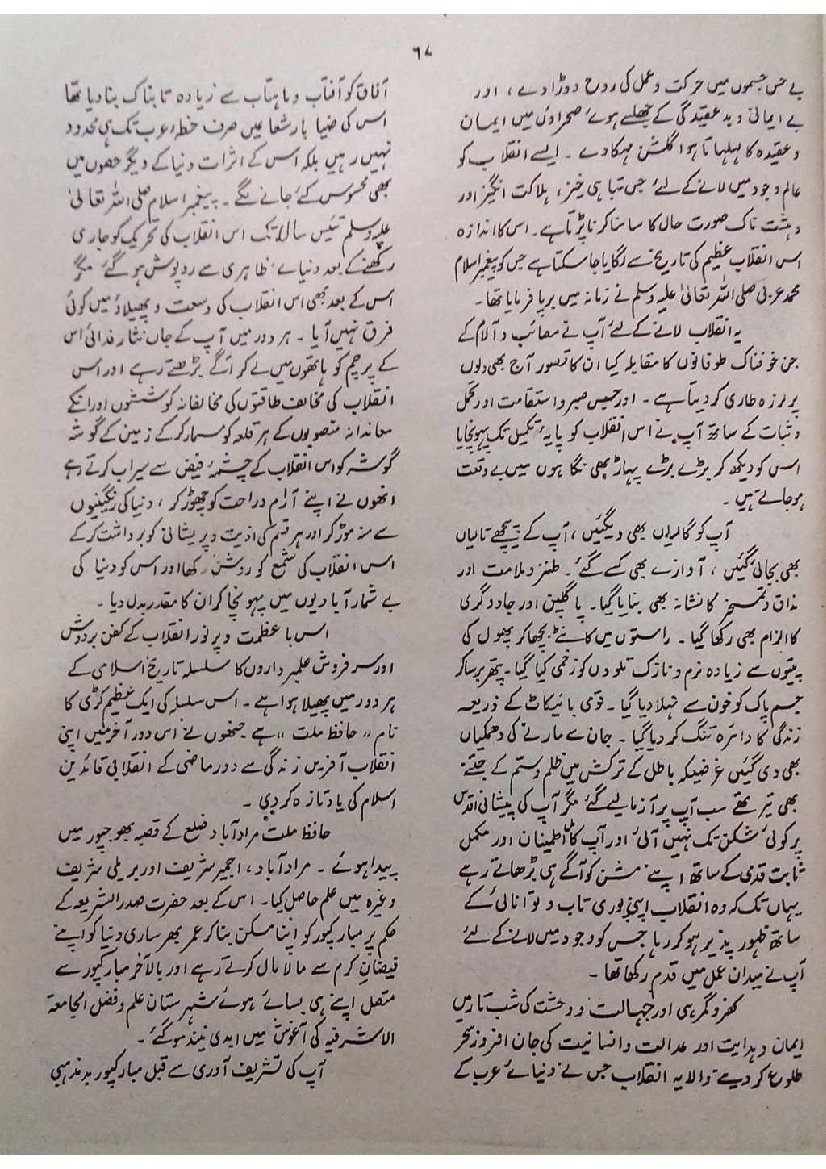 ۶۷
بے حس جسموں میں حرکت و عمل کی روح دوڑا دے ، اور
بے ایمانی و بد عقیدگی کے جھلسے ہوئے صحراؤں میں ایمان
و عقیدہ کا لہلہاتا ہوا گلشن مہکا دے ۔ ایسے انقلاب کو
عالم وجود میں لانے کے لئے جس تباہی خیز ، ہلاکت انگیز اور
دہشت ناک صورت حال کا سامنا کرنا پڑتا ہے ۔ اس کا اندازہ
اس انقلاب عظیم کی تاریخ سے لگایا جا سکتا ہے جس کو پیغمبر اسلام
محمد عربی صلی اللہ تعالیٰ علیہ وسلم نے زمانہ میں برپا فرمایا تھا ۔
یہ انقلاب لانے کے لئے آپ نے مصائب و آلام کے
جن خوفناک طوفانوں کا مقابلہ کیا ان کا تصور آج بھی دلوں
پر لرزہ طاری کر دیتا ہے ۔ اور جس صبر و استقامت اور تحمل
و ثبات کے ساتھ آپ نے اس انقلاب کو پایۂ تکمیل تک پہونچایا
اس کو دیکھ کر بڑے بڑے پہاڑ بھی نگاہوں میں بے وقعت
ہو جاتے ہیں ۔
آپ کو گالیاں بھی دی گئیں ، آپ کے پیچھے تالیاں
بھی بجائی گئیں ، آوازے بھی کسے گئے ۔ طنز و ملامت اور
مذاق و تمسخر کا نشانہ بھی بنایا گیا ۔ پاگلپن اور جادوگری
کا الزام بھی رکھا گیا ۔ راستوں میں کانٹے بچھا کر پھول کی
پتیوں سے زیادہ نرم و نازک تلوؤں کو زخمی کیا گیا ۔ پتھر برسا کر
جسم پاک کو خون سے نہلا دیا گیا ۔ قومی بائیکاٹ کے ذریعہ
زندگی کا دائرہ تنگ کر دیا گیا ۔ جان سے مارنے کی دھمکیاں
بھی دی گئیں غرضیکہ باطل کے ترکش میں ظلم و ستم کے جتنے
بھی تیر تھے سب آپ پر آزمالیے گئے مگر آپ کی پیشانی اقدس
پر کوئی شکن تک نہیں آئی اور آپ کامل اطمینان اور مکمل
ثابت قدمی کے ساتھ اپنے مشن کو آگے ہی بڑھاتے رہے
یہاں تک کہ وہ انقلاب اپنی پوری تاب و توانائی کے
ساتھ ظہور پذیر ہو کر رہا جس کو وجود میں لانے کے لئے
آپ نے میدان عمل میں قدم رکھا تھا ۔
کفر و گمرہی اور جہالت و وحشت کی شب تار میں
ایمان و ہدایت اور عدالت و انسانیت کی جان افروز سحر
طلوع کر دینے والا یہ انقلاب جس نے دنیائے عرب کے
آفاق کو آفتاب و ماہتاب سے زیادہ تابناک بنا دیا تھا
اس کی ضیا بار شعاعیں صرف خطۂ عرب تک ہی محدود
نہیں رہیں بلکہ اس کے اثرات دنیا کے دیگر حصوں میں
بھی محسوس کئے جانے لگے ۔ پیغمبر اسلام صلی اللہ تعالیٰ
علیہ وسلم تیئیس سال تک اس انقلاب کی تحریک کو جاری
رکھنے کے بعد دنیائے ظاہری سے روپوش ہو گئے مگر
اس کے بعد بھی اس انقلاب کی وسعت و پھیلاؤ میں کوئی
فرق نہیں آیا ۔ ہر دور میں آپ کے جاں نثار فدائی اس
کے پرچم کو ہاتھوں میں لے کر آگے بڑھتے رہے اور اس
انقلاب کی مخالف طاقتوں کی مخالفانہ کوششوں اور انکے
معاندانہ منصوبوں کے ہر قلعہ کو مسمار کر کے زمین کے گوشہ
گوشہ کو اس انقلاب کے چشمۂ فیض سے سیراب کرتے رہے
انھوں نے اپنے آرام و راحت کو چھوڑ کر ، دنیا کی رنگینیوں
سے منہ موڑ کر اور ہر قسم کی اذیت و پریشانی کو برداشت کر کے
اس انقلاب کی شمع کو روشن رکھا اور اس کو دنیا کی
بے شمار آبادیوں میں پہونچا کر ان کا مقدر بدل دیا ۔
اس با عظمت و پر نور انقلاب کے کفن بر دوش
اور سر فروش علمبرداروں کا سلسلہ تاریخ اسلامی کے
ہر دور میں پھیلا ہوا ہے ۔ اس سلسل کی ایک عظیم کڑی کا
نام ،، حافظ ملت ،، ہے جنھوں نے اس دور آخر میں اپنی
انقلاب آفریں زندگی سے دور ماضی کے انقلابی قائدین
اسلام کی یاد تازہ کر دی ۔
حافظ ملت مراد آباد ضلع کے قصبہ بھوجپور میں
پیدا ہوئے ۔ مراد آباد ، اجمیر شریف اور بریلی شریف
وغیرہ میں علم حاصل کیا ۔ اس کے بعد حضرت صدر الشریعہ کے
حکم پر مبارکپور کو اپنا مسکن بنا کر عمر بھر ساری دنیا کو اپنے
فیضان کرم سے مالا مال کرتے رہے اور بالآخر مبارکپور سے
متصل اپنے ہی بسائے ہوئے شہرستان علم و فضل الجامعۃ
الاشرفیہ کی آغوش میں ابدی نیند سو گئے ۔
آپ کی تشریف آوری سے قبل مبارکپور بد مذہبی